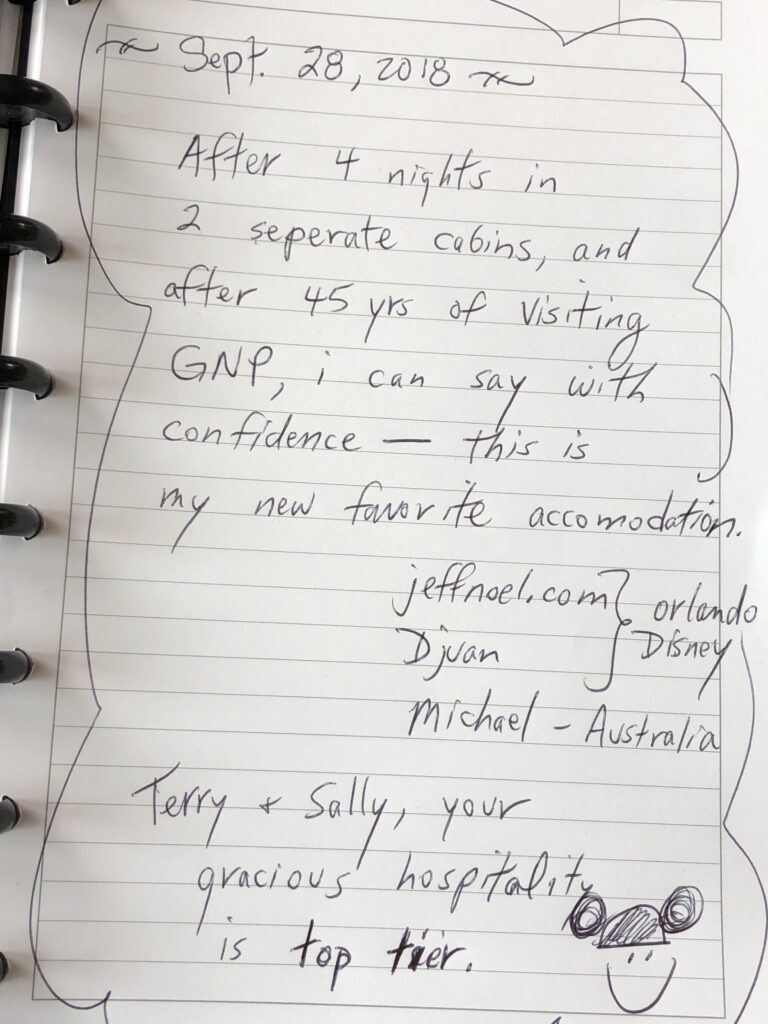 ~ Sept. 28, 2018 ~
After 4 nights in
2 seperate cabins, and
after 45 yrs of visiting
GNP, i can say with
confidence — this is
my new favorite accomodation.
jeffnoel.com } orlando
Djuan } Disney
Michael - Australia
Terry + Sally, your
gracious hospitality
is top tier.